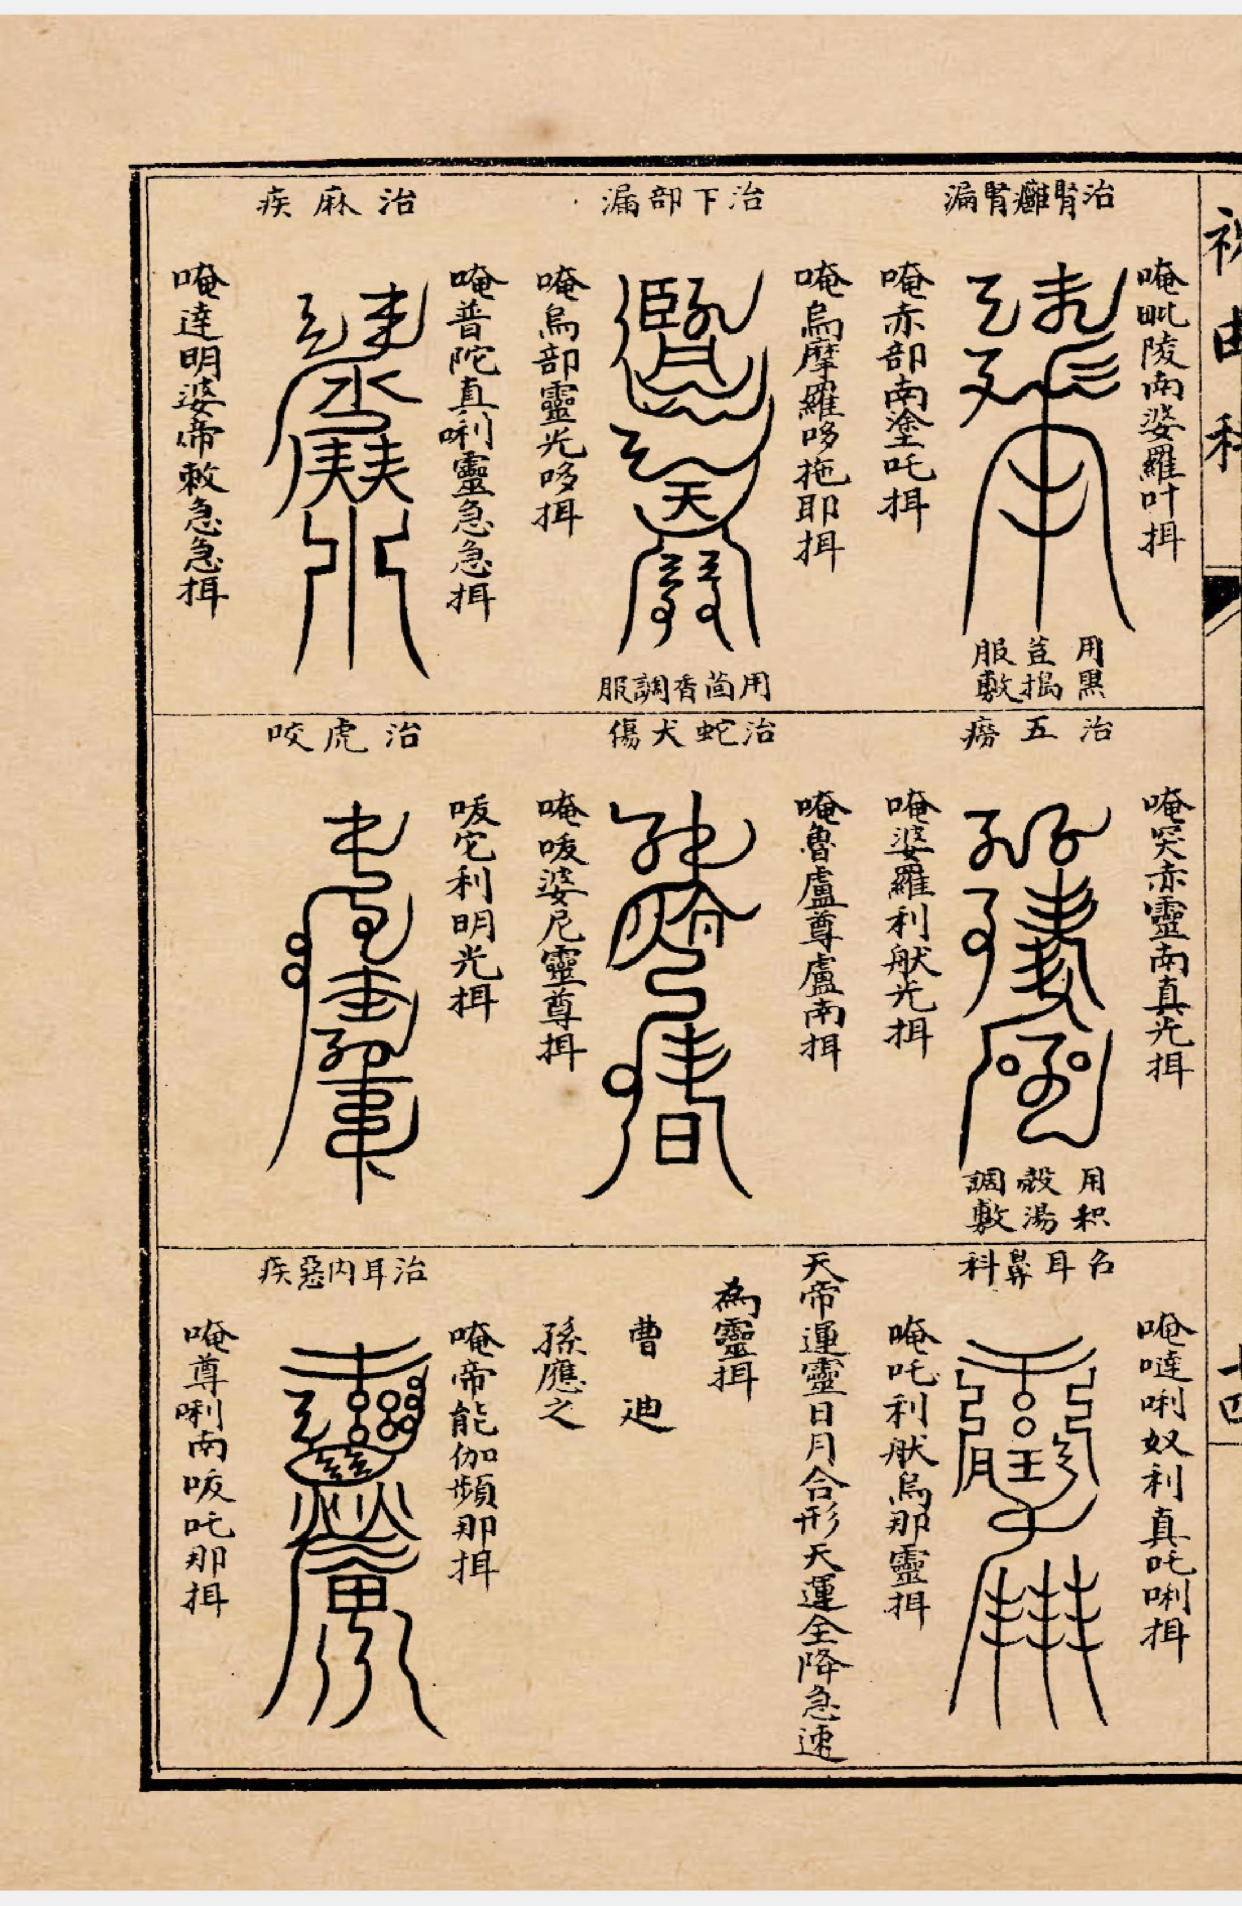 祝由科
十四
治腎癰腎漏
唵毗陵南婆羅叶揖
唵赤部南塗吒揖
用黑
荳搗
服敷
治下部漏
唵烏摩羅哆拖耶揖
唵烏部靈光哆揖
用茴香調服
治麻疾
唵普陀真唎靈急急揖
唵達明婆帝敕急急揖
治五癆
唵哭赤靈南真光揖
唵婆羅利舧光揖
用积
殼湯
調敷
治蛇犬傷
唵魯盧尊盧南揖
唵㕹婆尼靈尊揖
治虎咬
㕹宅利明光揖
名耳鼻科
唵噠唎奴利真吒唎揖
唵吒利舧烏那靈揖
天帝運靈日月合形天運全降急速
為靈揖
曹 迪
孫應之
治耳內惡疾
唵帝能伽頻那揖
唵尊唎南㕹吒那揖